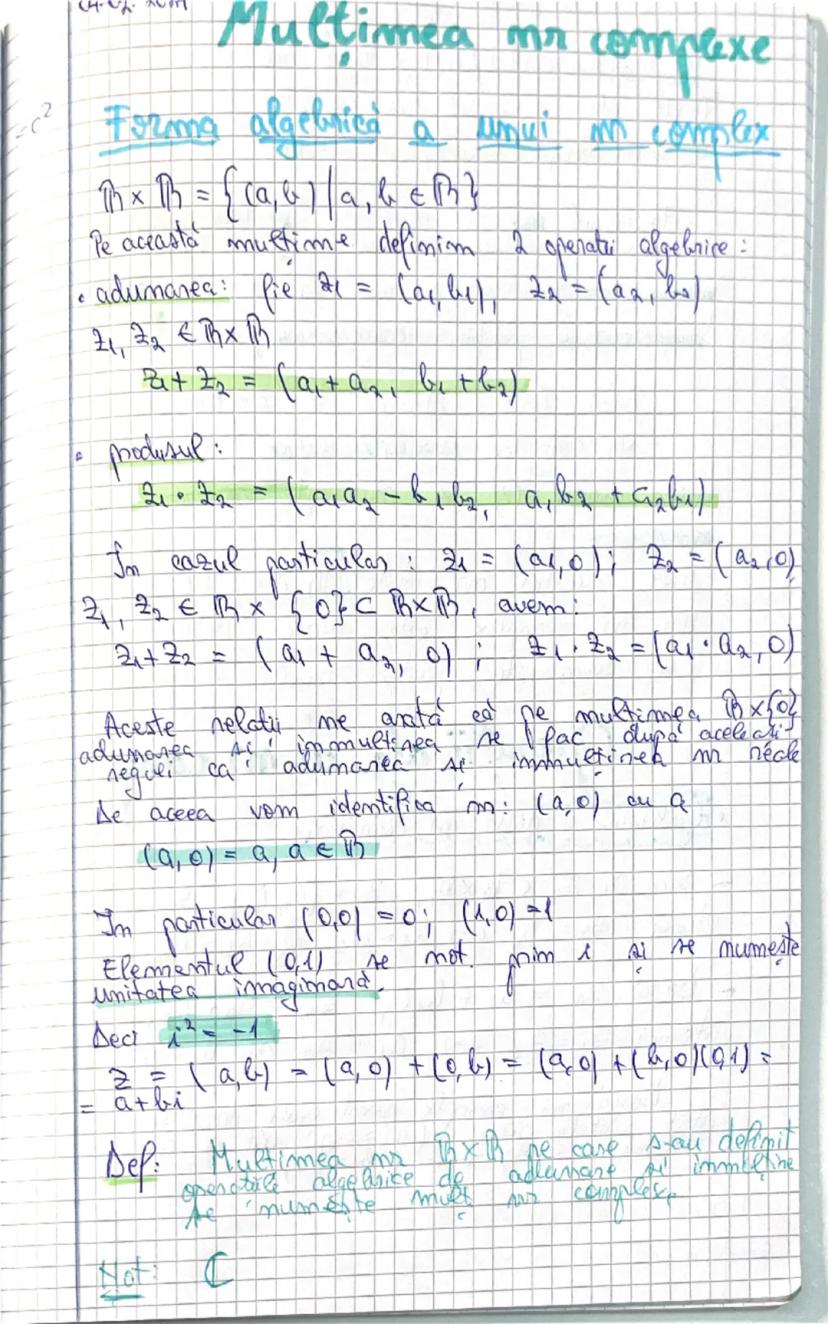 Mulțimea nr complexe
Forma algebrică a unui nr complex
ℝ × ℝ = {(a,b) | a, b ∈ ℝ}
Pe această mulțime definim 2 operații algebrice:
• adunarea: fie z₁ = (a₁, b₁), z₂ = (a₂, b₂)
z₁, z₂ ∈ ℝ × ℝ
z₁ + z₂ = (a₁ + a₂, b₁ + b₂)
• produsul:
z₁ · z₂ = (a₁a₂ − b₁b₂, a₁b₂ + a₂b₁)
În cazul particular: z₁ = (a₁, 0); z₂ = (a₂, 0)
z₁, z₂ ∈ ℝ × {0} ⊂ ℝ×ℝ, avem:
z₁ + z₂ = (a₁ + a₂, 0); z₁ · z₂ = (a₁ · a₂, 0)
Aceste relații ne arată că pe mulțimea ℝ × {0}
adunarea și înmulțirea se fac după aceleași
reguli ca adunarea și înmulțirea nr reale
De aceea vom identifica nr: (a, 0) cu a
(a, 0) = a, a ∈ ℝ
În particular (0,0) = 0; (1,0) = 1
Elementul (0,1) se not. prin i și se numește
unitatea imaginară.
Deci i² = -1
z = (a, b) = (a, 0) + (0, b) = (a, 0) + (b, 0)(0,1) =
= a + bi
Def: Mulțimea nr ℝ × ℝ pe care s-au definit
operațiile algebrice de adunare și înmulțire
se numește mulț nr complexe
Not: ℂ